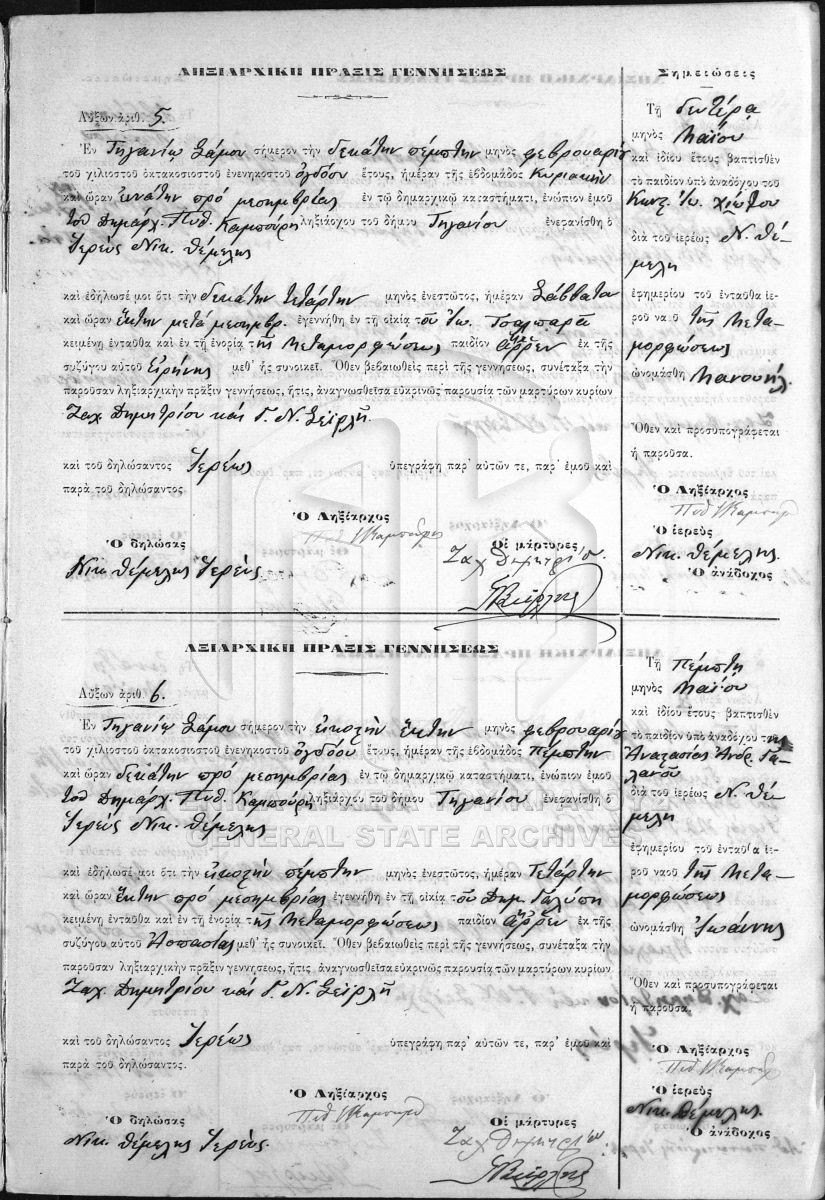 ΛΗΞΙΑΡΧΙΚΗ ΠΡΑΞΙΣ ΓΕΝΝΗΣΕΩΣ
Αὔξων ἀριθ. 5.
Ἐν Τηγανίῳ Σάμου σήμερον τὴν δεκάτην πέμπτην μηνὸς φεβρουαρίου
τοῦ χιλιοστοῦ ὀκτακοσιοστοῦ ἐνενηκοστοῦ ὀγδόου ἔτους, ἡμέραν τῆς ἑβδομάδος Κυριακὴν
καὶ ὥραν ἐννάτην πρό μεσημβρίας ἐν τῷ δημαρχικῷ καταστήματι, ἐνώπιον ἐμοῦ
τοῦ Δημάρχ. Πυθ. Καμπούρη ληξιάρχου τοῦ δήμου Τηγανίου ἐνεφανίσθη ὁ
Ἱερεὺς Νικ. Θέμελης
καὶ ἐδήλωσέ μοι ὅτι τὴν δεκάτην τετάρτην μηνὸς ἐνεστῶτος, ἡμέραν Σάββατον
καὶ ὥραν ἕκτην μετά μεσημβρ. ἐγεννήθη ἐν τῇ οἰκίᾳ τοῦ Ἰω. Τσαλπαρᾶ
κειμένῃ ἐνταῦθα καὶ ἐν τῇ ἐνορίᾳ τῆς Μεταμορφώσεως παιδίον ἄρρεν ἐκ τῆς
συζύγου αὐτοῦ Εἰρήνης μεθ' ἧς συνοικεῖ. Ὅθεν βεβαιωθεὶς περὶ τῆς γεννήσεως, συνέταξα τὴν
παροῦσαν ληξιαρχικὴν πρᾶξιν γεννήσεως, ἥτις, ἀναγνωσθεῖσα εὐκρινῶς παρουσίᾳ τῶν μαρτύρων κυρίων
Ζαχ. Δημητρίου καὶ Γ. Ν. Σεϊρλῆ
καὶ τοῦ δηλώσαντος Ἱερέως ὑπεγράφη παρ' αὐτῶν τε, παρ' ἐμοῦ καὶ
παρὰ τοῦ δηλώσαντος.
Ὁ Ληξίαρχος
Πυθ Ν Καμπούρης
Ὁ δηλώσας
Νικ. Θέμελης Ἱερεύς.
Οἱ μάρτυρες
Ζαχ Δημητρίου.
Σημειώσεις
Τῇ δευτέρᾳ
μηνὸς Μαΐου
καὶ ἰδίου ἔτους βαπτισθὲν
τὸ παιδίον ὑπὸ ἀναδόχου τοῦ
Κωνζ. Ἰω. Χιώτου
διὰ τοῦ ἱερέως Ν. Θέ-
μελη
ἐφημερίου τοῦ ἐνταῦθα ἱε-
ροῦ ναοῦ τῆς Μετα-
μορφώσεως
ὠνομάσθη Μανουήλ.
Ὅθεν καὶ προσυπογράφεται
ἡ παροῦσα.
Ὁ Ληξίαρχος
Πυθ Ν Καμπούρης
Ὁ ἱερεὺς
Νικ. Θέμελης.
Ὁ ἀνάδοχος
ΛΞΙΑΡΧΙΚΗ ΠΡΑΞΙΣ ΓΕΝΝΗΣΕΩΣ
Αὔξων ἀριθ. 6.
Ἐν Τηγανίῳ Σάμου σήμερον τὴν εἰκοστὴν ἕκτην μηνὸς φεβρουαρίου
τοῦ χιλιοστοῦ ὀκτακοσιοστοῦ ἐνενηκοστοῦ ὀγδόου ἔτους, ἡμέραν τῆς ἑβδομάδος Πέμπτην
καὶ ὥραν δεκάτην πρό μεσημβρίας ἐν τῷ δημαρχικῷ καταστήματι, ἐνώπιον ἐμοῦ
τοῦ Δημάρχ. Πυθ. Καμπούρη ληξιάρχου τοῦ δήμου Τηγανίου ἐνεφανίσθη ὁ
Ἱερεὺς Νικ. Θέμελης
καὶ ἐδήλωσέ μοι ὅτι τὴν εἰκοστὴν πέμπτην μηνὸς ἐνεστῶτος, ἡμέραν Τετάρτην
καὶ ὥραν ἕκτην πρό μεσημβρίας ἐγεννήθη ἐν τῇ οἰκίᾳ τοῦ Δημ. Γαλύπη
κειμένῃ ἐνταῦθα καὶ ἐν τῇ ἐνορίᾳ τῆς Μεταμορφώσεως παιδίον ἄρρεν ἐκ τῆς
συζύγου αὐτοῦ Ἀσπασίας μεθ' ἧς συνοικεῖ. Ὅθεν βεβαιωθεὶς περὶ τῆς γεννήσεως, συνέταξα τὴν
παροῦσαν ληξιαρχικὴν πρᾶξιν γεννήσεως, ἥτις, ἀναγνωσθεῖσα εὐκρινῶς παρουσίᾳ τῶν μαρτύρων κυρίων
Ζαχ. Δημητρίου καὶ Γ. Ν. Σεϊρλῆ
καὶ τοῦ δηλώσαντος Ἱερέως ὑπεγράφη παρ' αὐτῶν τε, παρ' ἐμοῦ καὶ
παρὰ τοῦ δηλώσαντος.
Ὁ Ληξίαρχος
Πυθ Ν Καμπούρης
Ὁ δηλώσας
Νικ. Θέμελης Ἱερεύς.
Οἱ μάρτυρες
Ζαχ Δημητρίου
Τῇ Πέμπτῃ
μηνὸς Μαΐου
καὶ ἰδίου ἔτους βαπτισθὲν
τὸ παιδίον ὑπὸ ἀναδόχου τῆς
Ἀναστασίας Ἀνδρ. Γα-
λανοῦ
διὰ τοῦ ἱερέως Ν. Θέ-
μελη
ἐφημερίου τοῦ ἐνταῦθα ἱε-
ροῦ ναοῦ τῆς Μετα-
μορφώσεως
ὠνομάσθη Ἰωάννης
Ὅθεν καὶ προσυπογράφεται
ἡ παροῦσα.
Ὁ Ληξίαρχος
Πυθ Ν Καμπούρης
Ὁ ἱερεὺς
Νικ. Θέμελης.
Ὁ ἀνάδοχος
GENERAL STATE ARCHIVES